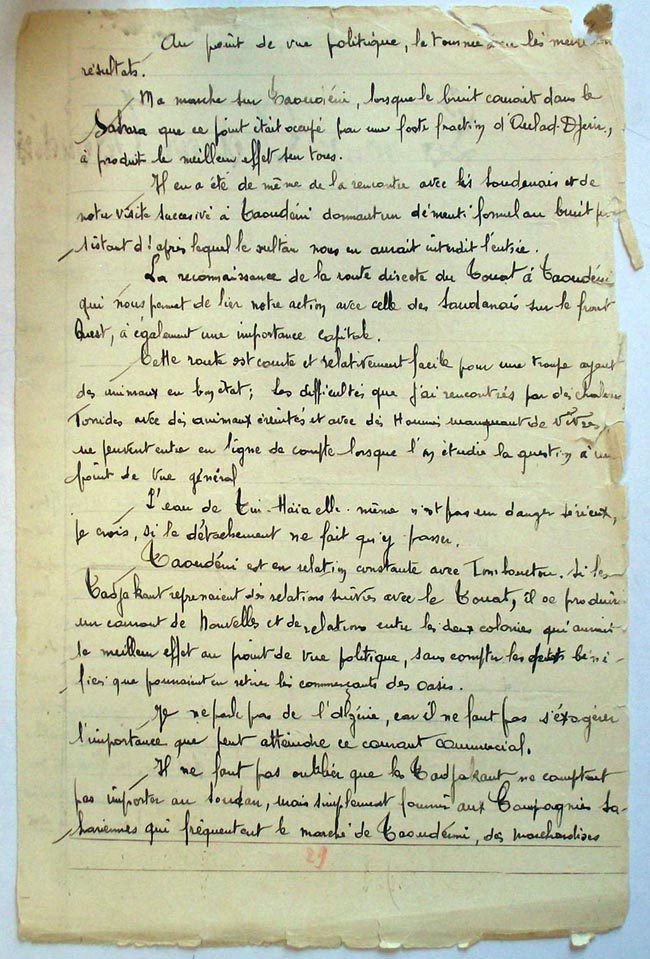 Au point de vue politique, la tournée a eu les meilleurs
résultats.
Ma marche sur Taoudéni, lorsque le bruit courait dans le
Sahara que ce point était occupé par une forte fraction d'Oulad-Djerir,
à produit le meilleur effet sur tous.
Il en a été de même de la rencontre avec les soudanais et de
notre visite succesive à Taoudéni donnant un démenti formel au bruit
sistant d'après lequel le sultan nous en aurait interdit l'entrée.
La reconnaissance de la route directe du Touat à Taoudéni
qui nous permet de lier notre action avec celle des Soudanais sur le front
Ouest, à également une importance capitale.
Cette route est courte et relativement facile pour une troupe ayant
des animaux en bon état; les difficultés que j'ai rencontrés par des chaleurs
Torrides avec des animaux éreintés et avec des Hommes manquant de vivres,
ne peuvent entrer en ligne de compte lorsque l'on étudie la question à un
point de vue général
L'eau de Tin-Haïa elle-même n'est pas un danger sérieux,
je crois, si le détachement ne fait qu'y passer.
Taoudéni est en relation constante avec Tombouctou. Si les
Tadjakant reprenaient des relations suivies avec le Touat, il se produirait
un courant de Nouvelles et de relations entre les deux colonies qui aurait
le meilleur effet au point de vue politique, sans compter les petits béné-
fices que pourraient en retirer les commerçants des oasis.
Je ne parle pas de l'Algérie, car il ne faut pas s'éxagérer
l'importance que peut atteindre ce courant commercial.
Il ne faut pas oublier que les Tadjakant ne comptent
pas importer au Soudan, mais simplement fournir aux Compagnies Sa-
hariennes qui fréquentent le marché de Taoudénni, des marchandises
29